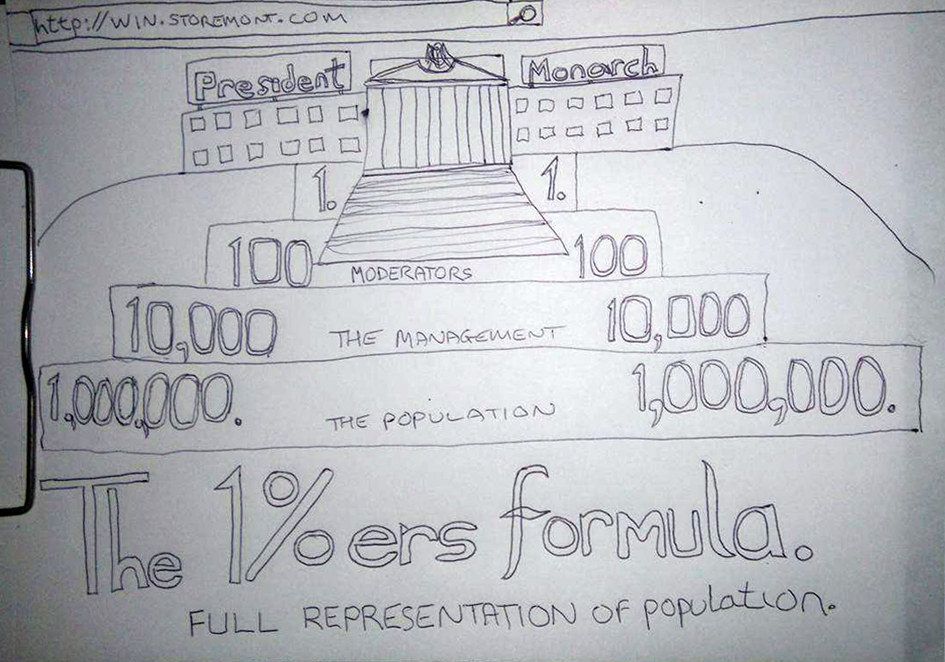 http://WIN.STOREMONT.COM
President Monarch
1. 1.
100 MODERATORS 100
10,000 THE MANAGEMENT 10,000
1,000,000. THE POPULATION 1,000,000.
The 1%ers formula.
FULL REPRESENTATION OF population.